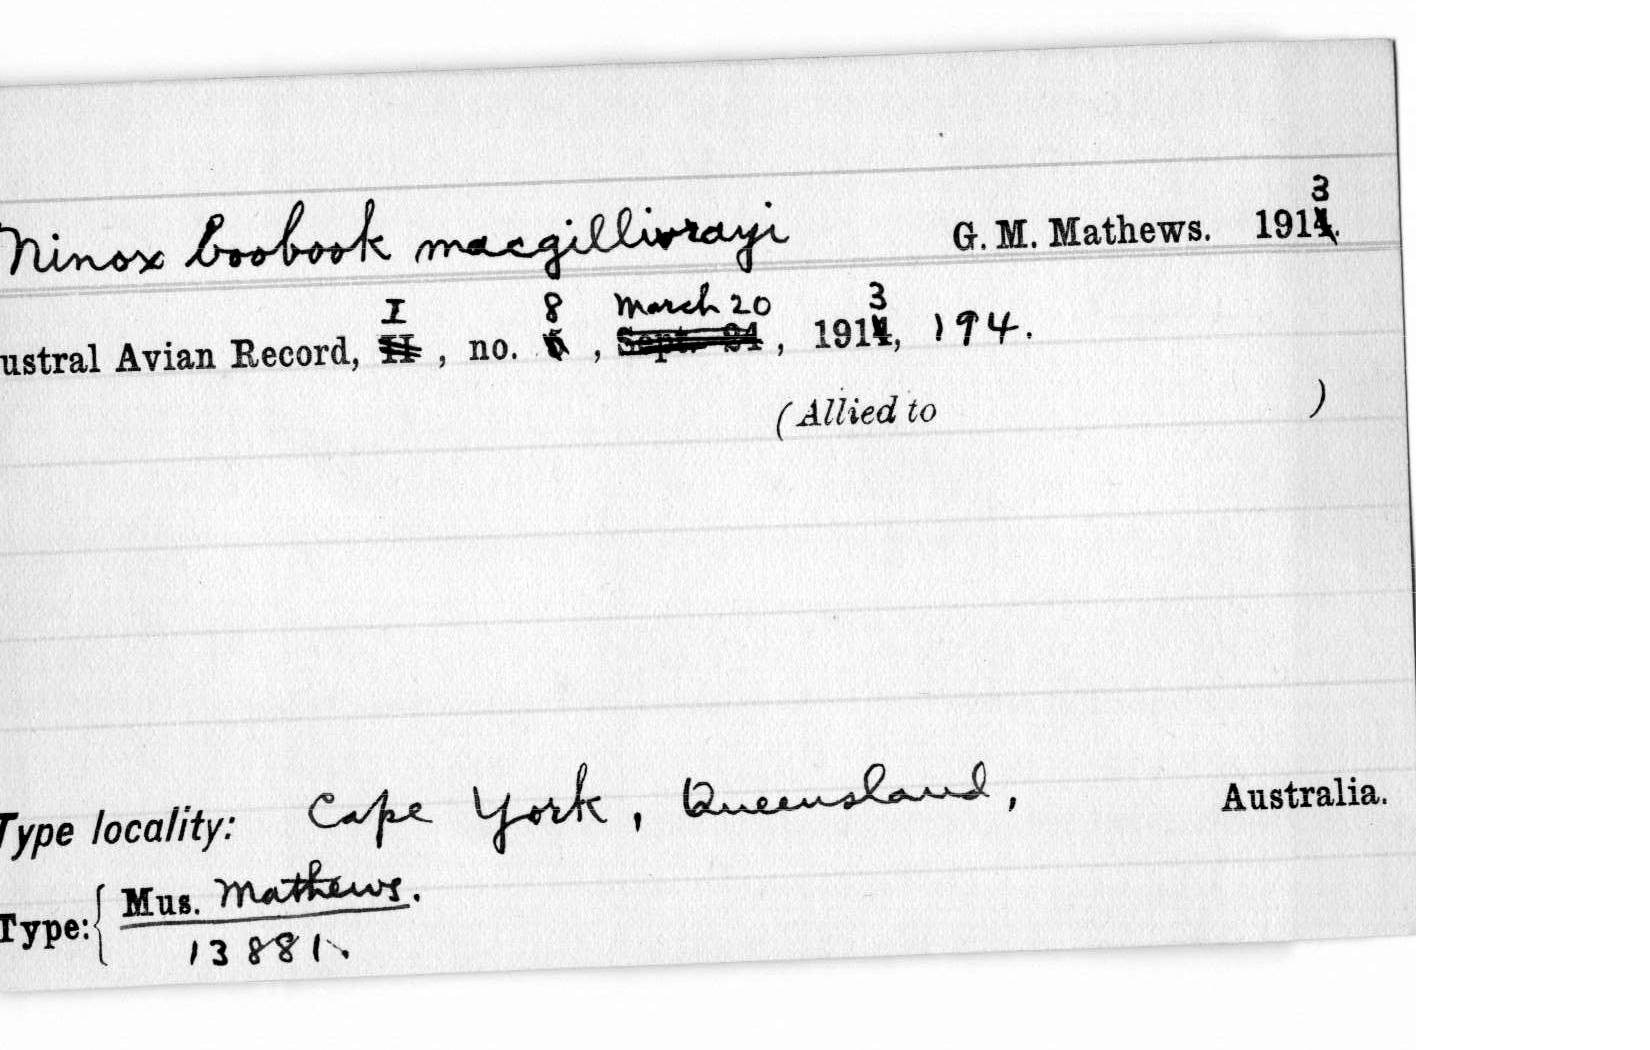 Ninox boobook macgillivrayi G. M. Mathews. 1913
ustral Avian Record, I, no. 8, March 20, 1913, 194.
(Allied to )
Type locality: Cape York, Queensland, Australia.
Type: Mus. Mathews.
13881.